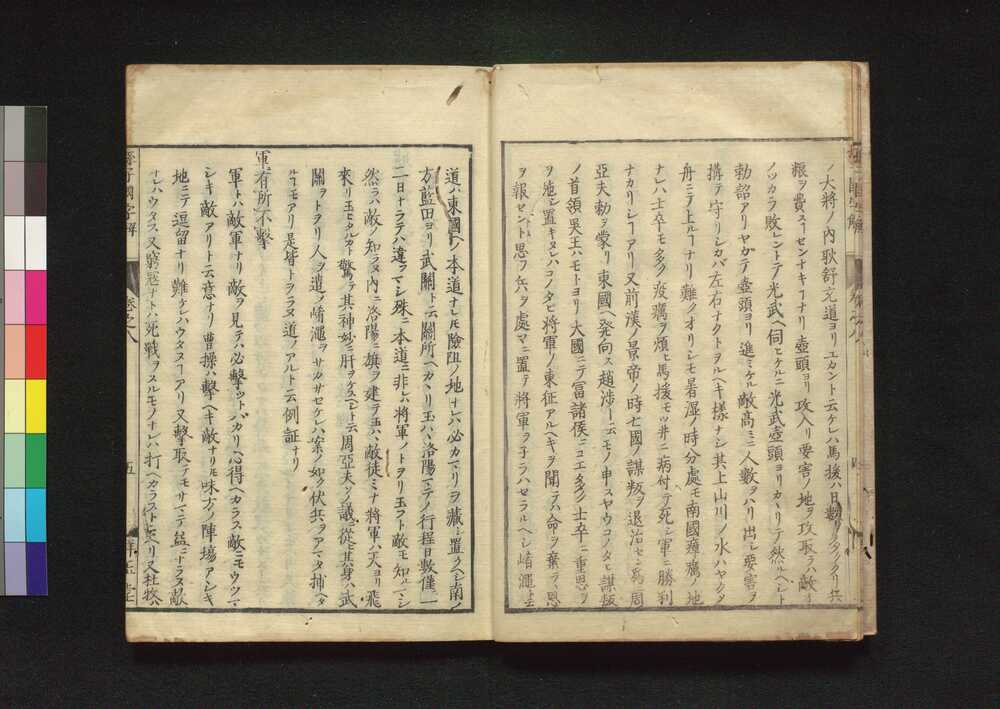 ノ大將ノ内耿舒充道ヨリユカント云ケレハ馬援ハ日數
粮ヲ費スーセンナキーナリ壺頭ヨリ攻入リ要害ノ地ヲ攻取ラハ敵
ノツカラ敗レントテ光武ヘ伺ヒケルニ光武壺頭ヨリカヽリテ然ルヘシト
勅詔アリヤカテ壺頭ヨリ進ミケル敵髙ミニ人數ヲハリ出シ要害ヲ
搆テ守リシカバ左右ナクトヲルヘキ樣ナシ其上山川ノ水ハヤクタ
舟ニテ上ルーナリ難ノオリシモ暑濕ノ時分處モ南國瘴癘ノ地
ナレハ士卒モ多ク疫癘ヲ煩ヒ馬援モツ井ニ病付テ死シ軍ニ勝利
ナカリシーアリ又前漢ノ景帝ノ時七國ノ謀叛ヲ退治セシ爲周
亞夫勅ヲ蒙リ東國ヘ發向ス趙渉ト云モノ申スヤウコノタヒ謀叛
ノ首領吴王ハモトヨリ大國ニテ冨諸侯ニコエ多ク士卒ニ重恩ヲ
ヲ施シ置キタレハコノタヒ將軍ノ東征アルヘキヲ聞テハ命ヲ棄テ恩
ヲ報セント思フ兵ヲ處マニ置テ將軍ヲ子ラハセラルヘシ崤澠ト云
道ハ東國ヘノ本道ナレモ險阻ノ地ナレハ必カマリヲ藏シ置クヘシ南ノ
方藍田ヨリ武關ト云關所ヘカヽリ玉ハヽ洛陽マテノ行程日數僅一
二日ナラテハ違フマシ殊ニ本道ニ非レハ將軍ノトヲリ玉フト敵モ知ルマシ
然ラハ敵ノ知ラヌ内ニ洛陽ニ旗ヲ建ラ玉ハヽ敵徒ミナ將軍ハ天ヨリ飛
來リ玉ヒタルカト驚テ其神妙ニ肝ヲケスヘシト云周亞夫ソノ議ニ從ヒ其身ハ武
關ヲトヲリ人ヲ遣シ崤澠ヲサカサセケレハ案ノ如ク伏兵ヲアマタ捕ヘタ
ルーモアリ是皆トヲラヌ道ノアルト云例証ナリ
軍有所不擊
軍トハ敵軍ナリ敵ヲ見テハ必擊ットバカリ心得ヘカラス敵ニモウツマ
シキ敵アリト云意ナリ曹操ハ擊ヘキ敵ナリモ味方ノ陣塲アシキ
地ニテ逗留ナリ難ケレハウタヌーアリ又擊取テモサマテ益ニナラヌ敵
ナレハウタス又窮冦ナトハ死戰ヲスルモノナレハ打ヘカラストモヘリ又杜牧ハ
卷之八
五